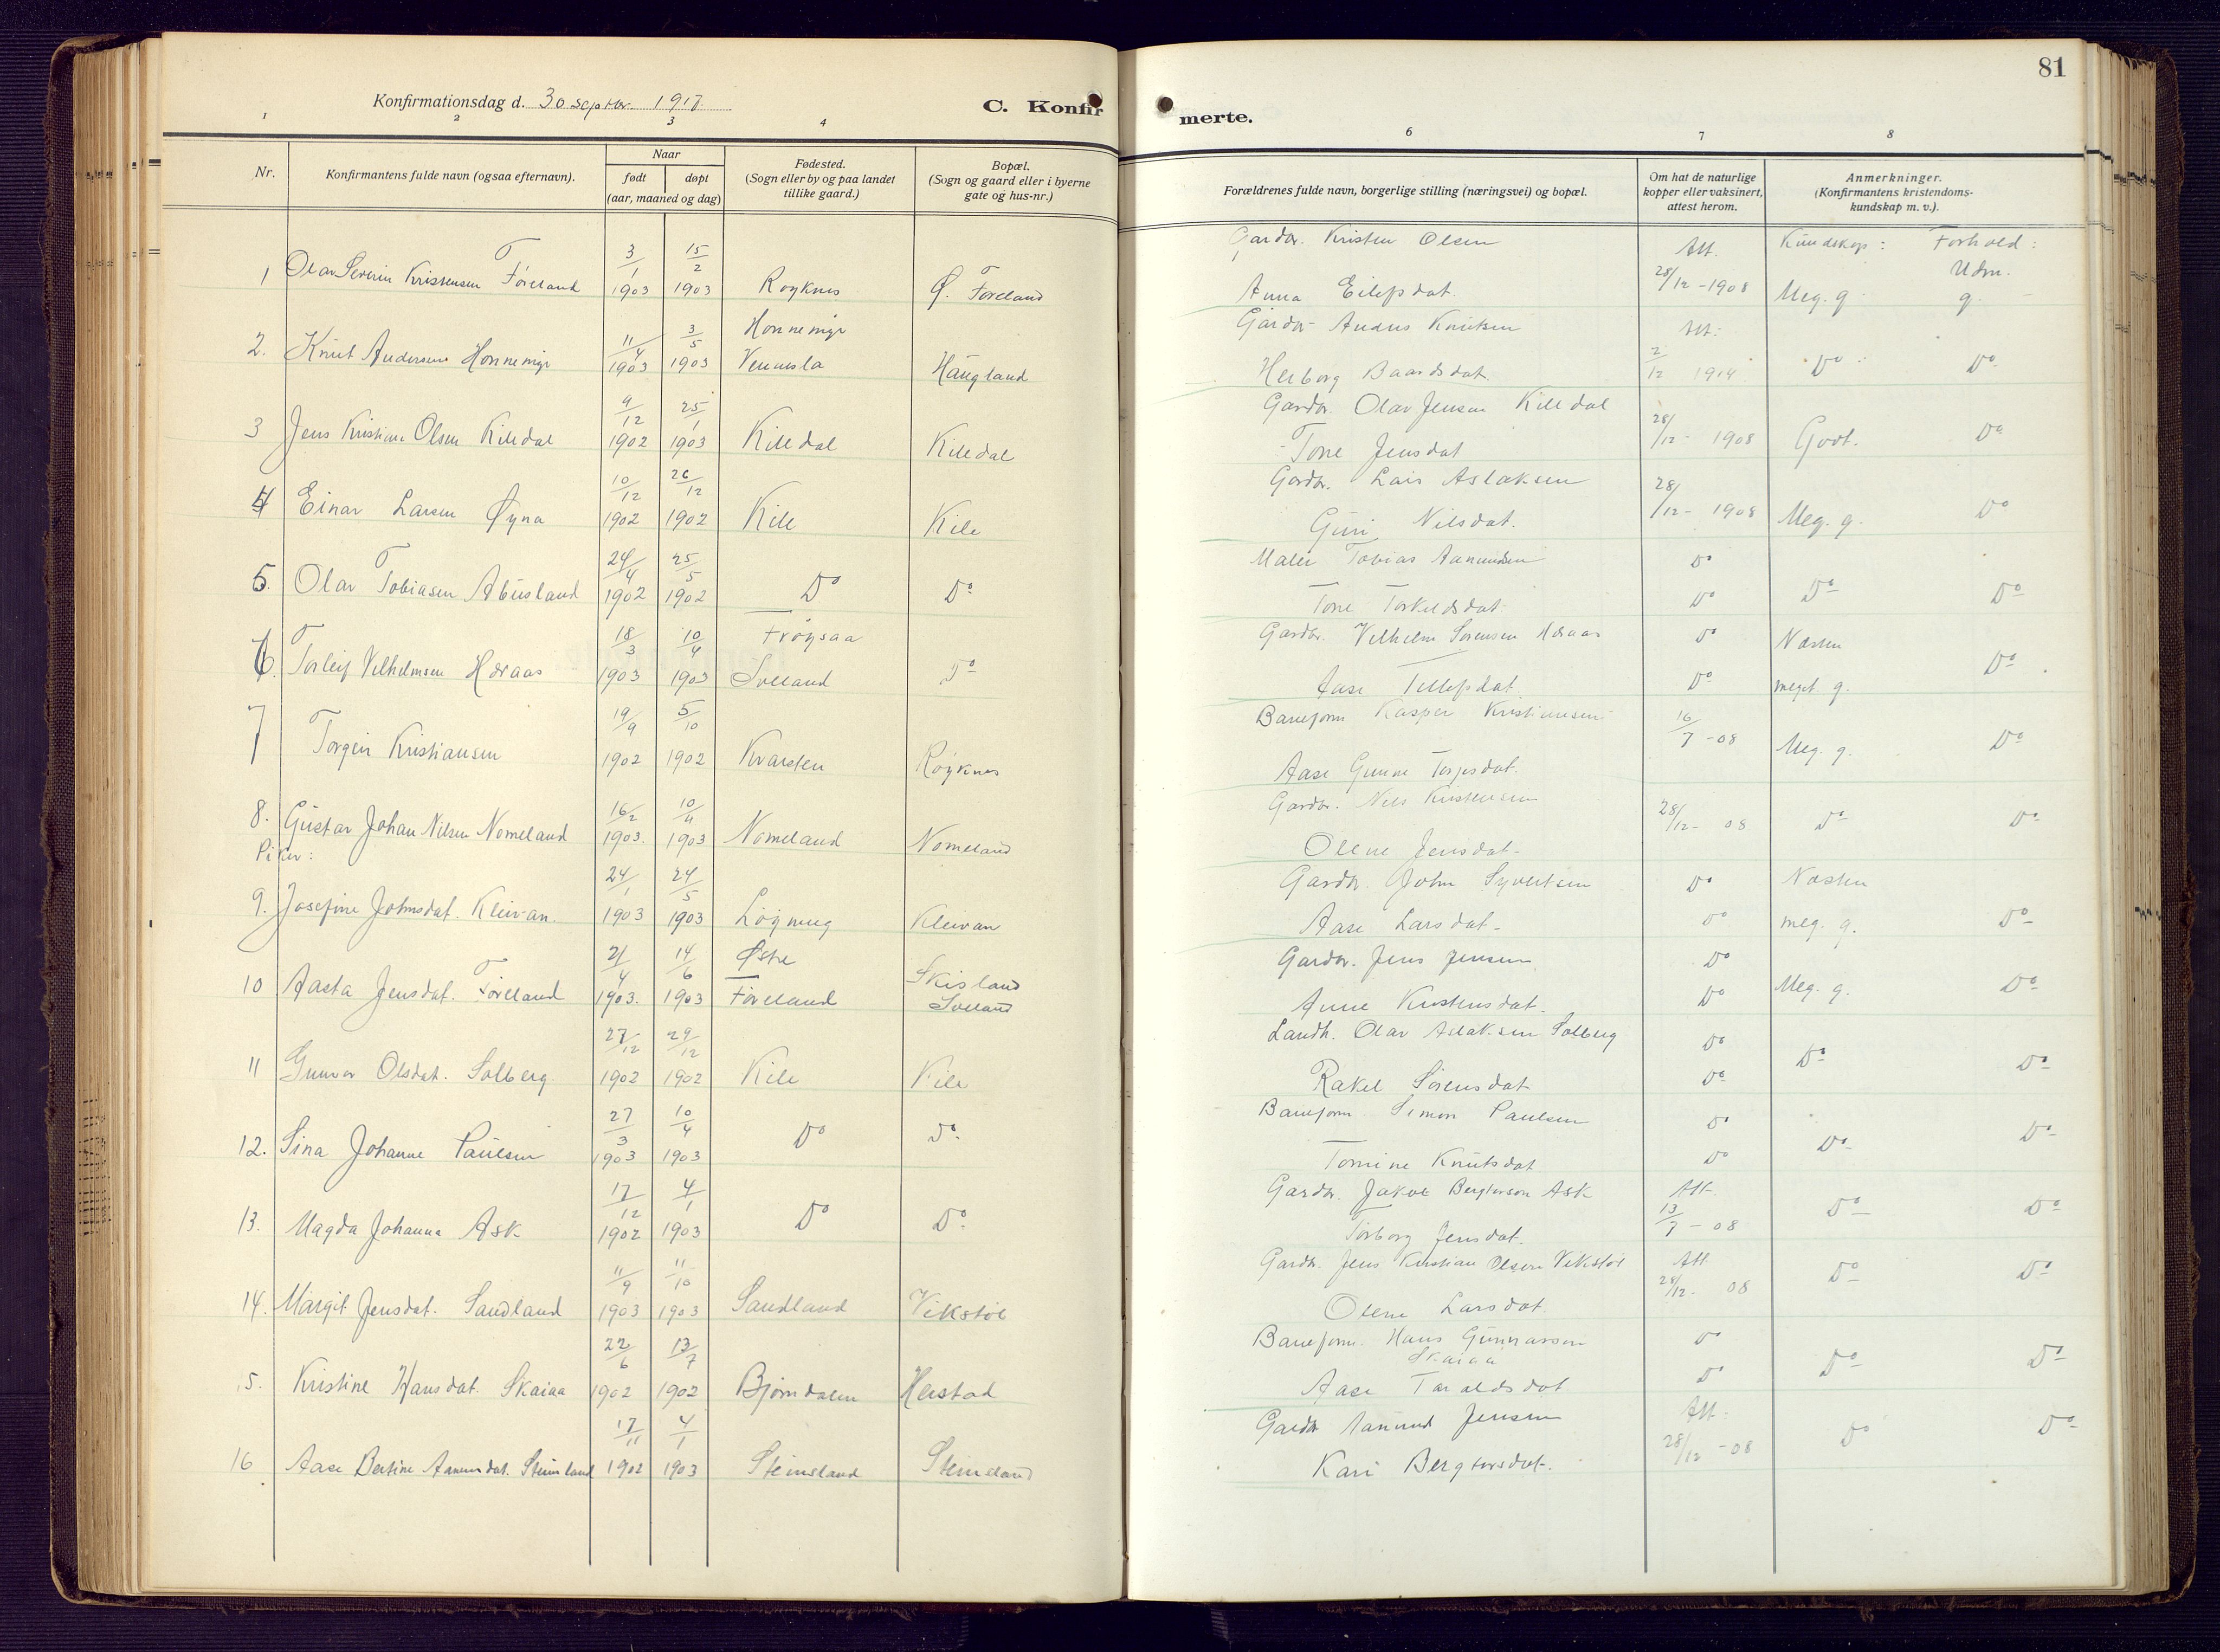 81
Konfirmationsdag d. 30 septbr. 1917.
C. Konfir
merte.
1 2 3 4
6 7 8
Nr.
Konfirmantens fulde navn (ogsaa efternavn).
Naar
født
døpt
(aar, maaned og dag)
Fødested.
(Sogn eller by og paa landet
tillike gaard.)
Bopæl.
(Sogn og gaard eller i byerne
gate og hus-nr.)
Forældrenes fulde navn, borgerlige stilling (næringsvei) og bopæl.
Om hat de naturlige
kopper eller vaksinert,
attest herom.
Anmerkninger.
(Konfirmantens kristendoms-
kundskap m. v.).
Kundskap: Forhold:
3/1 15/2 Gardbr. Kristen Olsen Att. Udm.
1 Olav Severin Kristensen Føreland 1903 1903 Røyknes Ø. Føreland Anna Eilefsdat. 28/12-1908 Meg. g. g.
11/4 3/5 Honnemyr Gardbr. Anders Knutsen Att.
2. Knut Andersen Honnemyr 1903 1903 Vennesla Haugland Herborg Baardsdat. 2/12 1914 Do Do
9/12 25/1 Gardbr. Olav Jensen Kiledal
3 Jens Kristian Olsen Kiledal 1902 1903 Kiledal Kiledal Tone Jensdat 28/12- 1908 Godt. Do
10/12 26/12 Gardbr. Lars Aslaksen
4 Einar Larsen Øyna 1902 1902 Kile Kile Guri Nilsdat. 28/12- 1908 Meg. g. Do
24/4 25/5 Maler Tobias Aanundsen Do
5. Olav Tobiasen Abusland 1902 1902 Do Do Tone Torkeldsdat. Do Do Do
18/3 10/4 Frøysaa Gardbr. Vilhelm Sørensen Høraas Do Næsten
6. Torleif Vilhelmsen Høraas 1903 1903 Solland Do Aase Tellefsdat. Do meget g. Do
19/9 5/10 Baneform. Kasper Kristiansen
7 Torgeir Kristiansen 1902 1902 Kvarsten Røyknes Aase Gunne Torjusdat. 16/7-08 Meg. g. Do
16/2 10/4 Gardbr. Nils Kristensen
8. Gustav Johan Nilsen Nomeland 1903. 1903 Nomeland Nomeland Olene Jensdat. 28/12- 08 Do Do
Piker:
24/1 24/5 Gardbr. John Syvertsen Do Næsten
9. Josefine Johnsdat. Kleivan. 1903 1903 Løgmug Kleivan Aase Larsdat. Do meg. g. Do
21/4 14/6 Østre Skisland Gardbr. Jens Jensen Do
10 Aasta Jensdat. Føreland 1903. 1903 Føreland Solland Anne Kristensdat. Do Meg. g. Do
27/12 29/12 Landh. Olav Aslaksen Solberg Do
11 Gunvor Olsdat. Solberg 1902 1902 Kile Kile Rakel Sørensdat Do Do Do
27/3 10/4 Baneform Simon Paulsen Do
12. Sina Johanne Paulsen 1903 1903 Do Do Tomine Knutsdat Do Do Do
17/12 4/1 Gardbr. Jakob Bergtorson Ask Att.
13. Magda Johanna Ask 1902 1903 Do Do Torborg Jensdat. 13/7-08 Do Do
11/9 11/10 Gardbr. Jens Kristian Olsen Vikstøl Att.
14. Margit Jensdat. Sandland 1903 1903 Sandland Vikstøl Olene Larsdat. 28/12. 08 Do Do
22/6 13/7 Baneform. Hans Gunnarsson Skaiaa Do
5. Kristine Hansdat. Skaiaa 1902 1902 Bjørndalen Herstad Aase Taraldsdat Do Do Do
17/11 4/1 Gardbr Aanund Jensen Att.
16 Aase Bertine Aanunsdat. Steinsland 1902 1903 Steinsland Steinsland Kari Bergtorsdat. 28/12-08 Do Do